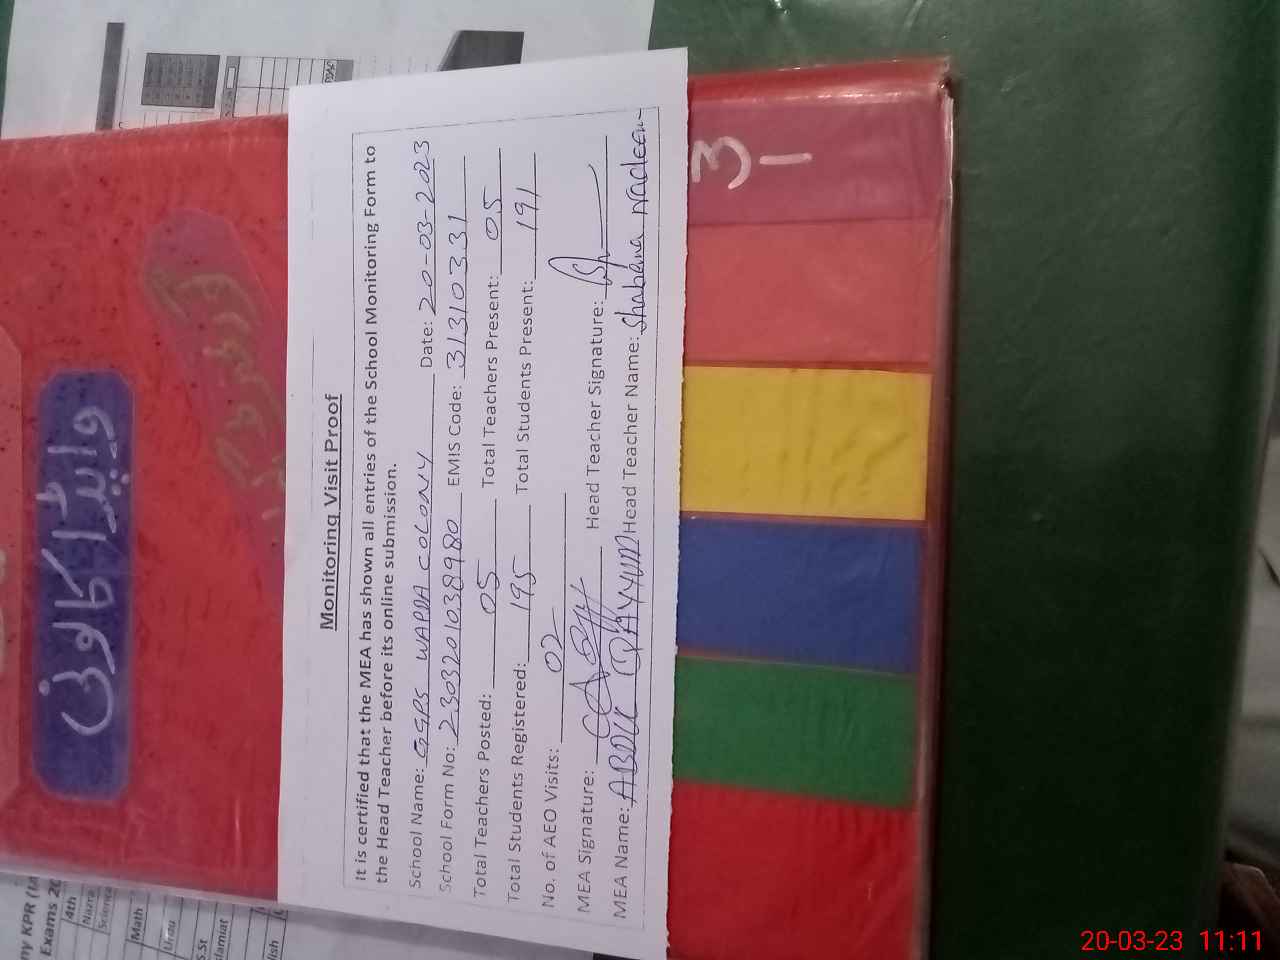 Monitoring Visit Proof
It is certified that the MEA has shown all entries of the School Monitoring Form to
the Head Teacher before its online submission.
School Name: GGPS WAPDA COLONY Date: 20-03-2023
School Form No: 2303201038980 EMIS Code: 31310331
Total Teachers Posted: 05 Total Teachers Present: 05
Total Students Registered: 195 Total Students Present: 191
No. of AEO Visits: 02
MEA Signature: Head Teacher Signature:
MEA Name: ABDUL QAYYUM Head Teacher Name: Shabana Nadeem
واپڈا کالونی
31
ny KPR (M
Exams 20
4th
Nazra
Science
Math
Urdu
S.St
slamiat
lish
20-03-23 11:11